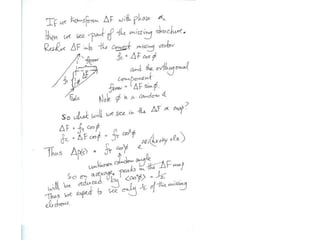 If we transform ΔF with phase α
then we see part of the missing structure.
Resolve ΔF into the correct missing vector
f₂ = ΔF cos φ
and the orthogonal
component
f_error = ΔF sin φ.
Note φ is a random ∠
So what will we see in the ΔF α map?
ΔF = f₂ cos φ
f₂ = ΔF cos φ = f₂ cos² φ
Thus Δρ(r) = f₂ cos² φ
unknown random angle
So on average peaks in the ΔF map
will be reduced by ⟨cos² φ⟩ = ½
Thus we expect to see only ½ of the missing
electrons.